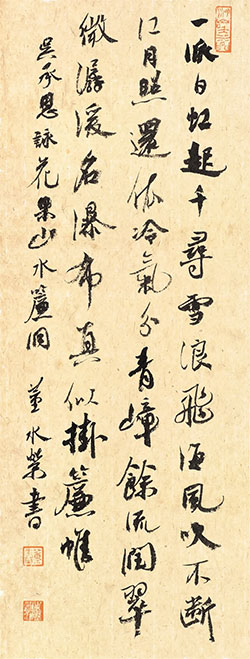 一派白虹起千尋雪浪飛海風吹不斷
江月照還依冷氣分青嶂餘流潤翠
微潺湲名瀑布真似掛簾帷
吳承恩詠花果山水簾洞 董水榮書